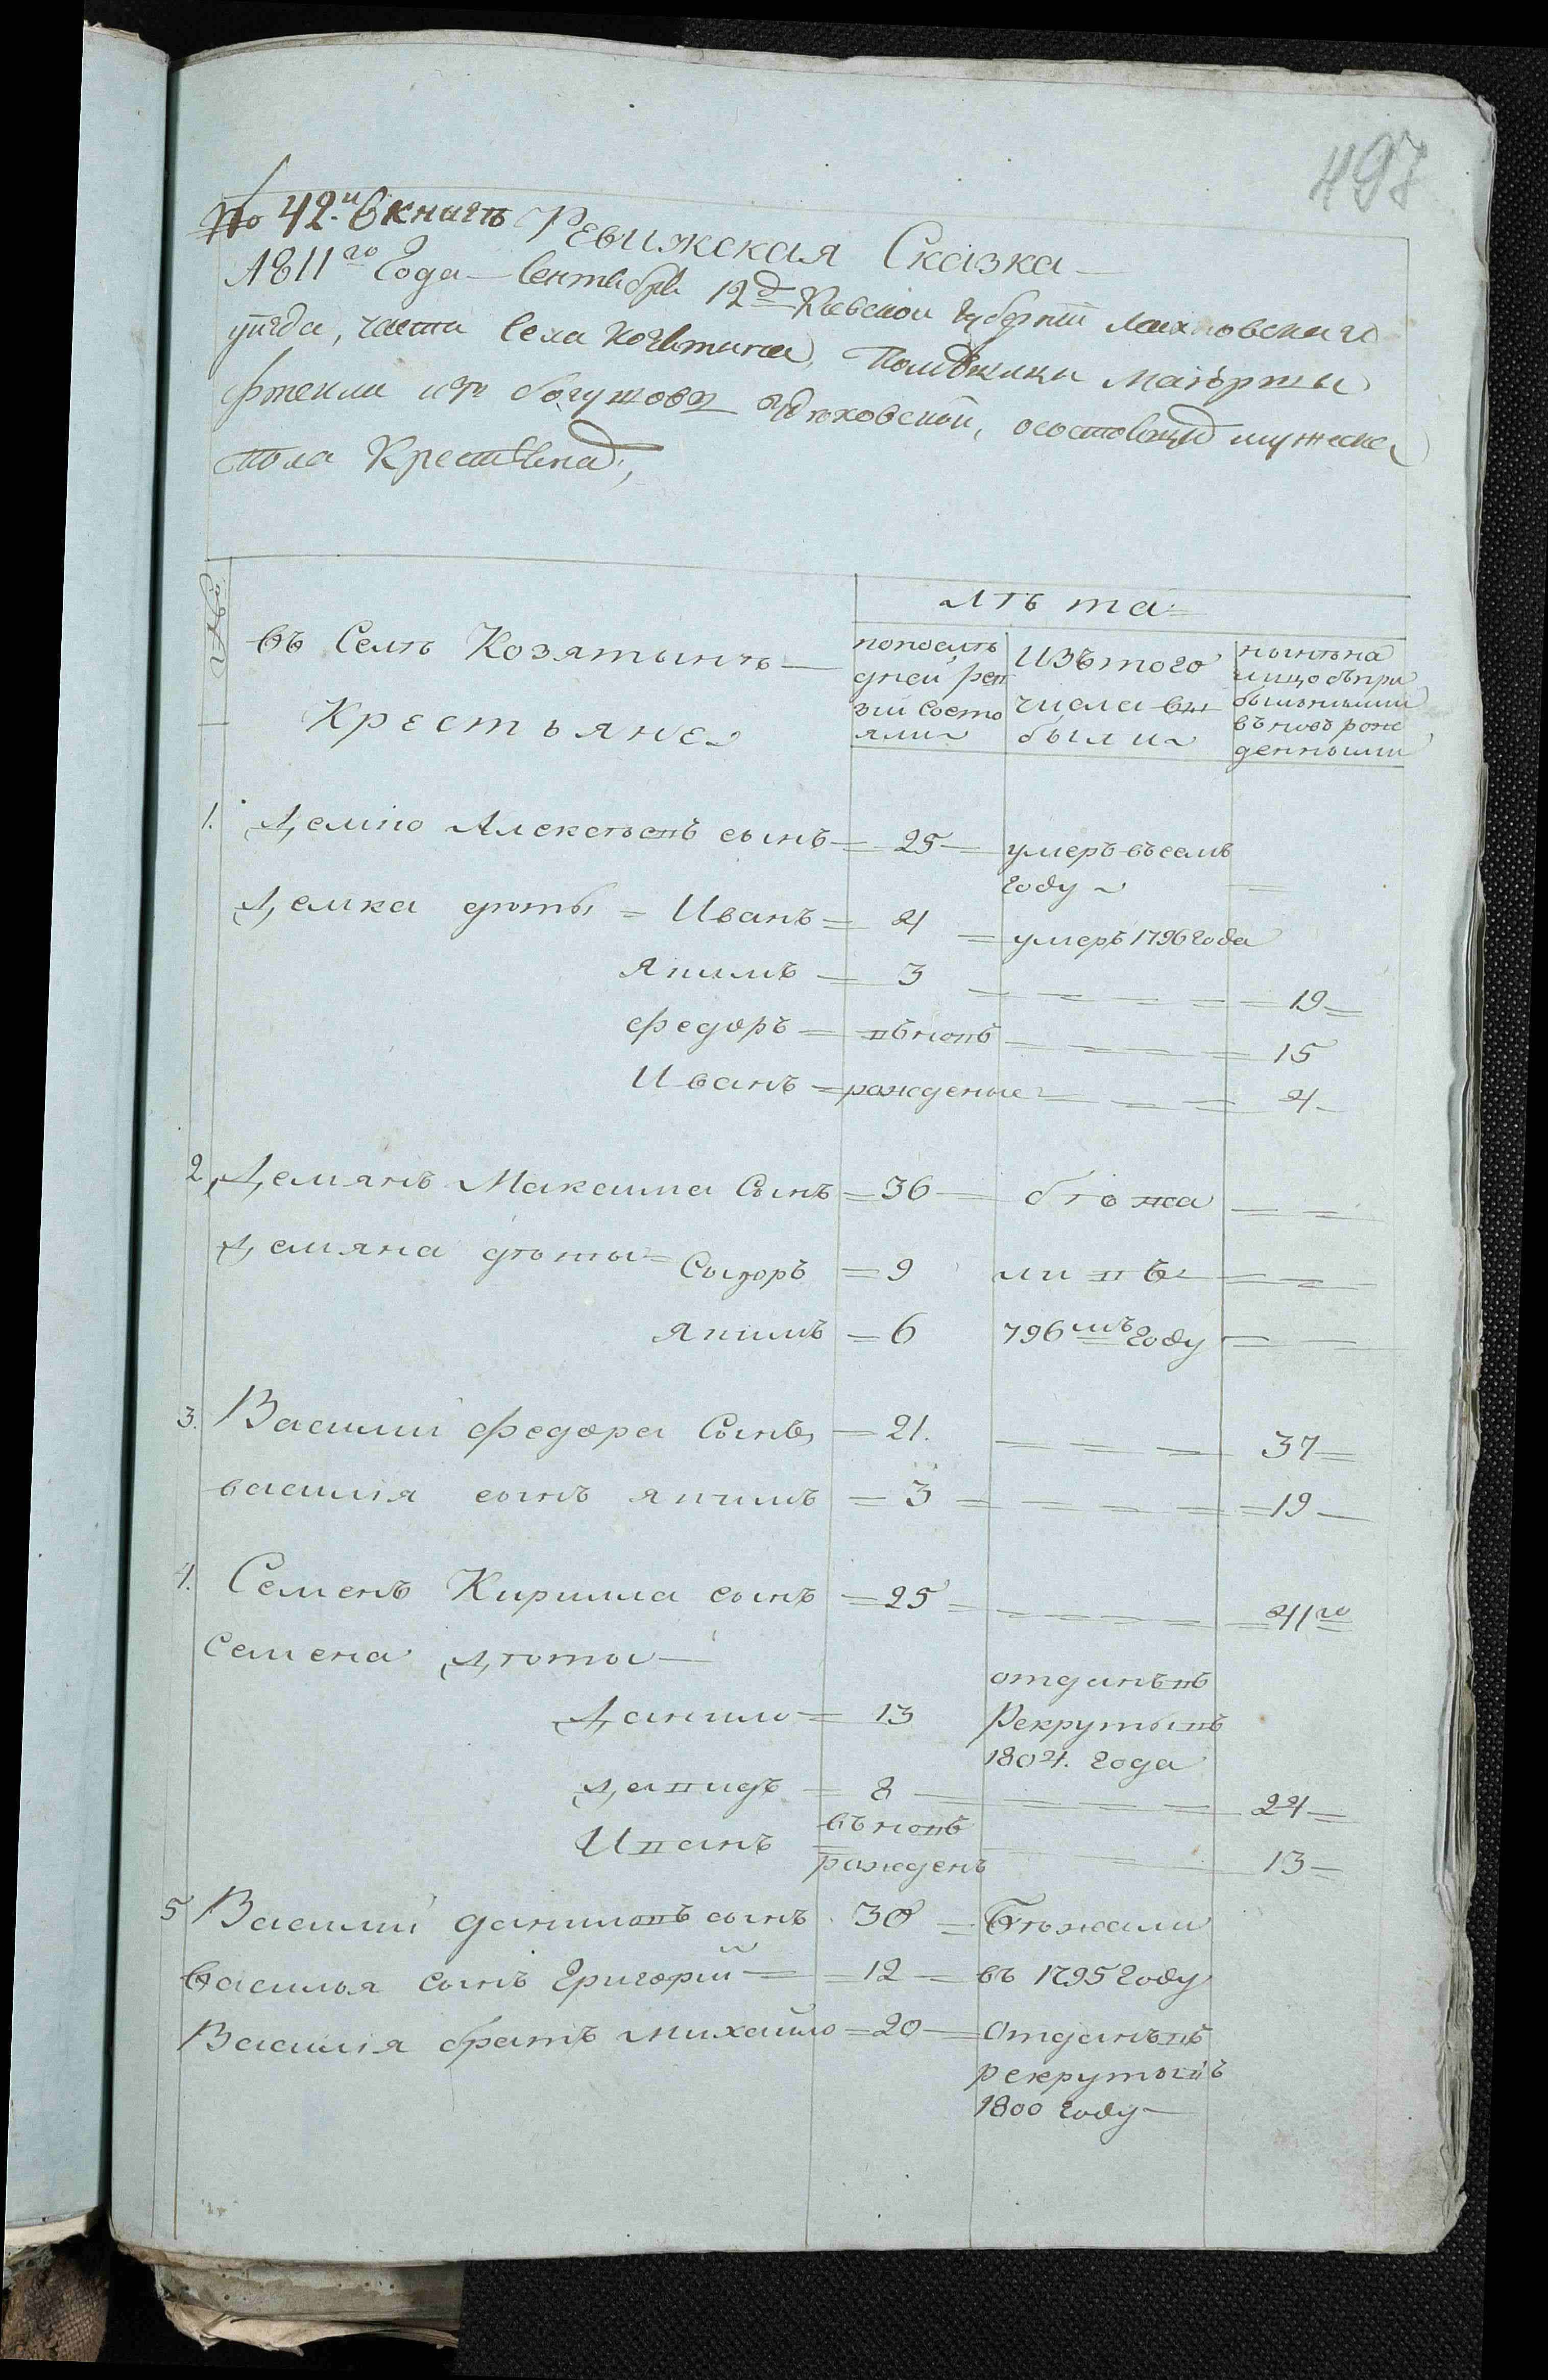 497
по 42.й в книгѣ Ревижская Сказка
1811го Года Сентября 12д Киевской Губернiи Махновского
уѣзда, части Села Козятина, Помѣщицы
изъ мужеска
пола Крестьянах,
№
въ Селѣ Козятынѣ
Крестьяне
лѣта
попослѣ
дней реви
зiи состо
яли
изъ того
числа вы
были
нынѣ на
лицо съ при
былными
въновь рож
денными
1. Демко Алексѣевъ сынъ 25 умеръ въ семъ
Году
Демка дѣты Иванъ 4 умеръ 1796 года
Якимъ 3 19
федоръ въновь 15
Иванъ рожденые 4
2. Демянъ Максима Сынъ 36 бѣжа
Демяна дѣты Сыдоръ 9 ли въ
Якимъ 6 796мъ Году
3. Василий федора Сынъ 21. 37
василiя сынъ якимъ 3 19
4. Семенъ Кирилла сынъ 25 41го
Семена Дѣты
Данило 13 отданъ въ
Рекруты въ
1804. года
Давидъ 8 24
Иванъ въновь
рожденъ 13
5 Василий даниловъ сынъ 30 Бѣжали
василья сынъ Григорiй 12 въ 1795 Году
Василiя братъ михайло 20 Отданъ въ
рекруты въ
1800 Году